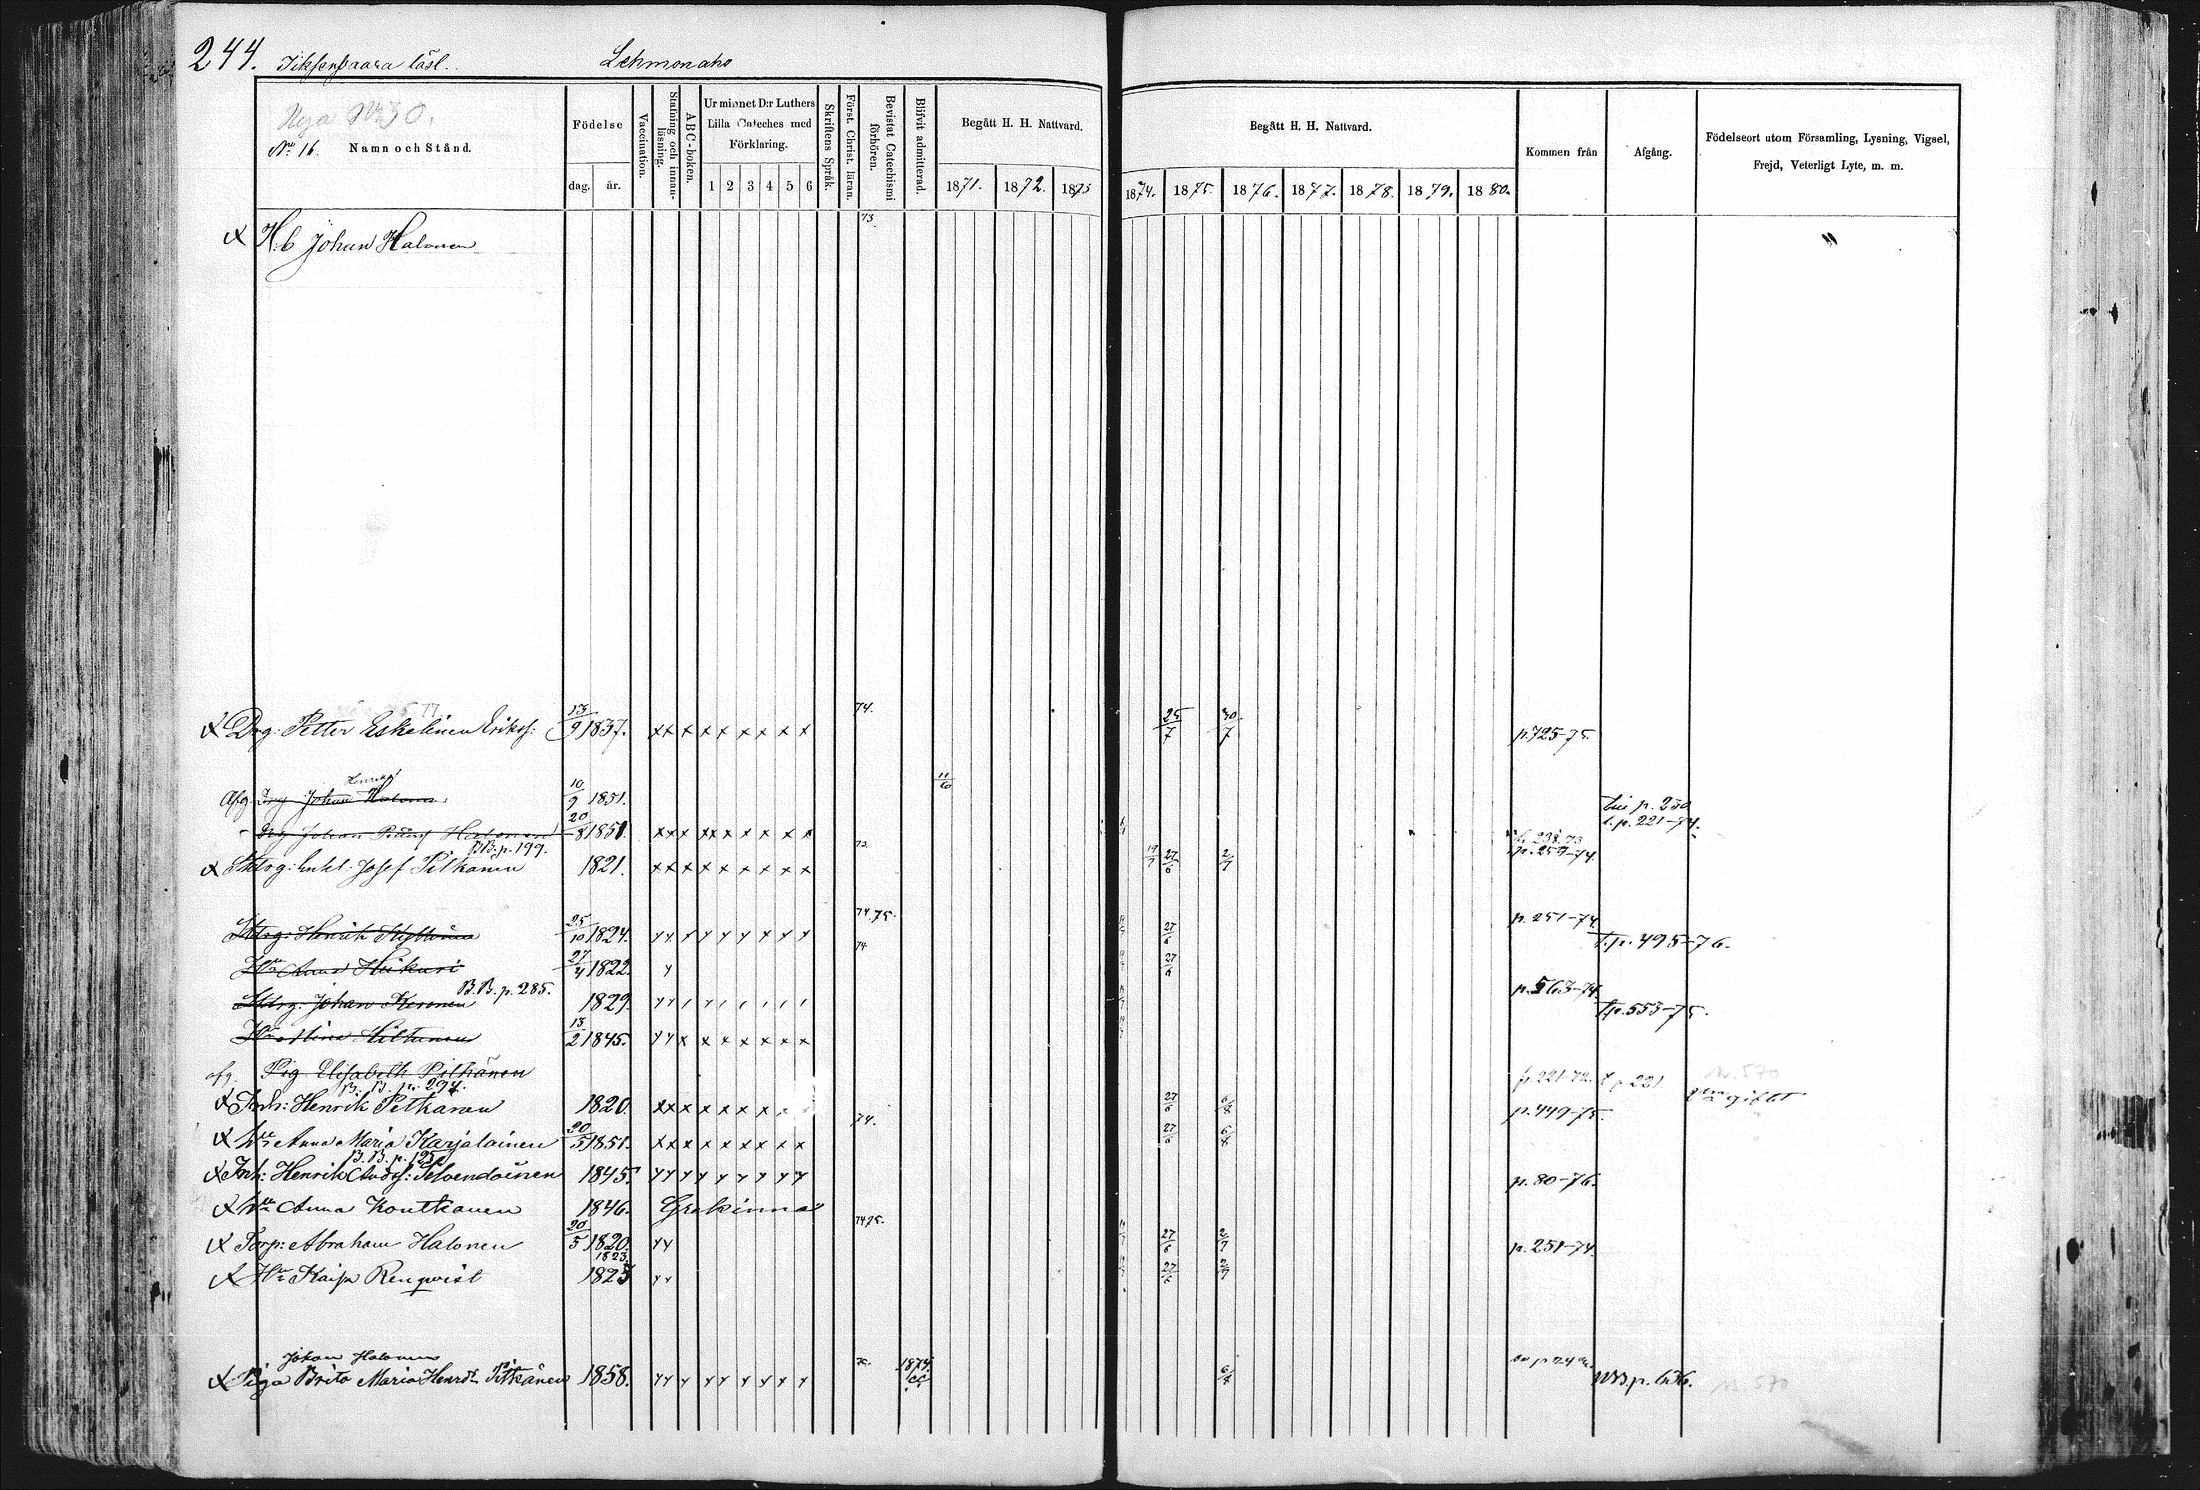 244. Tiksenvaara läsl. Lehmonaho
Nya No 30.
No 16. Namn och Stånd.
Födelse
dag. år.
Vaccination.
Stafning och innanläsning.
ABC-boken.
Ur minnet D:r Luthers
Lilla Cateches med
Förklaring.
1 2 3 4 5 6
Skriftens Språk.
Först. Christ. läran.
Bevistat Catechismi förhören.
Blifvit admitterad.
Begått H. H. Nattvard.
1871. 1872. 1873
Begått H. H. Nattvard.
1874. 1875. 1876. 1877. 1878. 1879. 1880.
Kommen från
Afgång.
Födelseort utom Församling, Lysning, Vigsel,
Frejd, Veterligt Lyte, m. m.
73.
X H:b Johan Halonen "
X Drg: Petter Eskelinen Erikss: 13/9 1837. x x x x x x x x x 74. 25/7 30/7 p. 725-75.
Henriks
Afg. Drg Johan Halonen 10/9 1851. 11/6 p. 250
20/8 1851. x x x x x x x x x t. p. 221-74.
B.B. p. 199.
X Josef Pitkänen 1821. x x x x x x x x x 73. 19/7 27/6 2/7 p. 259-74.
Henrik 25/10 1824. x x x x x x x x x 74. 75. 27/6 p. 251-74. t. p. 495-76.
H:u Anna Hukuri 27/4 1822. x 74 27/6
B.B. p. 285.
Johan Keronen 1829. p. 563-74. t. p. 553-75.
H:u Stina Hiltunen 13/2 1845. x x x x x x x x x
afg. Pig. Elisabeth Pitkänen p. 221-72. t p 221. N. 570
B. B. p. 294.
X Inh: Henrik Pitkänen 1820. x x x x x x x 27/6 6/8 p. 449-75. gift
X H:u Anna Maria Karjalainen 20/5 1851. x x x x x x x x x 74. 27/6 6/8
B. B. p. 125
X Inh: Henrik Andss: Silvendoinen 1845. x x x x x x x x x p. 80-76.
X H:u Anna Kontkanen 1846. Grekinna
X Torp: Abraham Halonen 20/5 1820. x x 74 75. 27/6 2/7 p. 251-74.
1823.
X H:u Kaisa Renqvist 1825 x x 27/6 2/7
Johan Halonens
X Piga Brita Maria Henrdr Pitkänen 1858. x x x x x x x x x 1874. 6/8 p. 636. N. 570